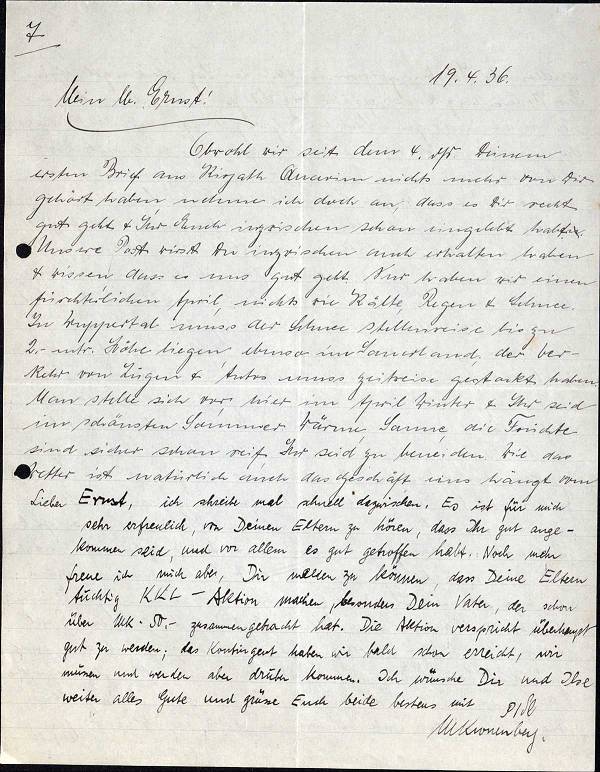 7
19.4.36.
Mein lb. Ernst!
Obwohl wir seit dem 4. ds Deinem
ersten Brief aus Kirjath Anavim nichts mehr von Dir
gehört haben, nehme ich doch an, dass es Dir recht
gut geht & Ihr Euch inzwischen schon eingelebt habt.
Unsere Post wirst Du inzwischen auch erhalten haben
& wissen dass es uns gut geht. Nur haben wir einen
fürchterlichen April, nichts wie Kälte, Regen & Schnee.
In Wuppertal muss der Schnee stellenweise bis zu
2.- mtr. Höhe liegen ebenso im Sauerland. der Ver-
kehr von Zügen & Autos muss zeitweise gestockt haben.
Man stelle sich vor, hier im April Winter & Ihr seid
im schönsten Sommer, Wärme, Sonne, die Früchte
sind sicher schon reif. Ihr seid zu beneiden. Wie das
Wetter ist natürlich auch das Geschäft uns hängt vom
Lieber Ernst, ich schreibe mal schnell dazwischen. Es ist für mich
sehr erfreulich, von Deinen Eltern zu hören, dass Ihr gut ange-
kommen seid, und vor allem es gut getroffen habt. Noch mehr
freue ich mich aber, Dir melden zu können, dass Deine Eltern
tüchtig KKL-Aktion machen, besonders Dein Vater, der schon
über Mk. 50.- zusammengebracht hat. Die Aktion verspricht überhaupt
gut zu werden; das Kontingent haben wir bald schon erreicht, wir
müssen und werden aber drüber kommen. Ich wünsche Dir und Ilse
weiter alles Gute und grüsse Euch beide bestens mit
MKronenberg.